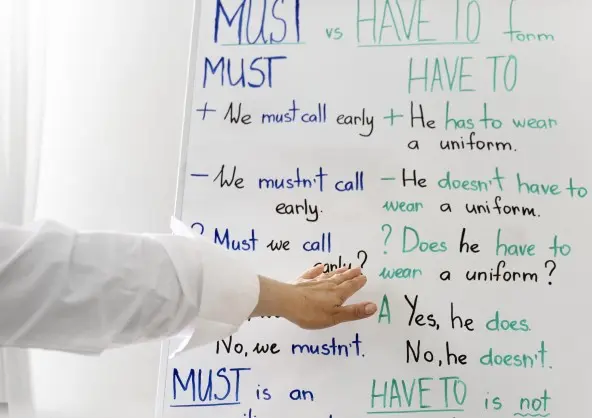 MUST vs HAVE TO form
MUST
+ We must call early
- We mustn't call
early.
? Must we call
early?
No, we mustn't.
MUST is an
HAVE TO
+ He has to wear
a uniform.
- He doesn't have to
wear a uniform.
? Does he have to
wear a uniform?
A Yes, he does.
No, he doesn't.
HAVE TO is not